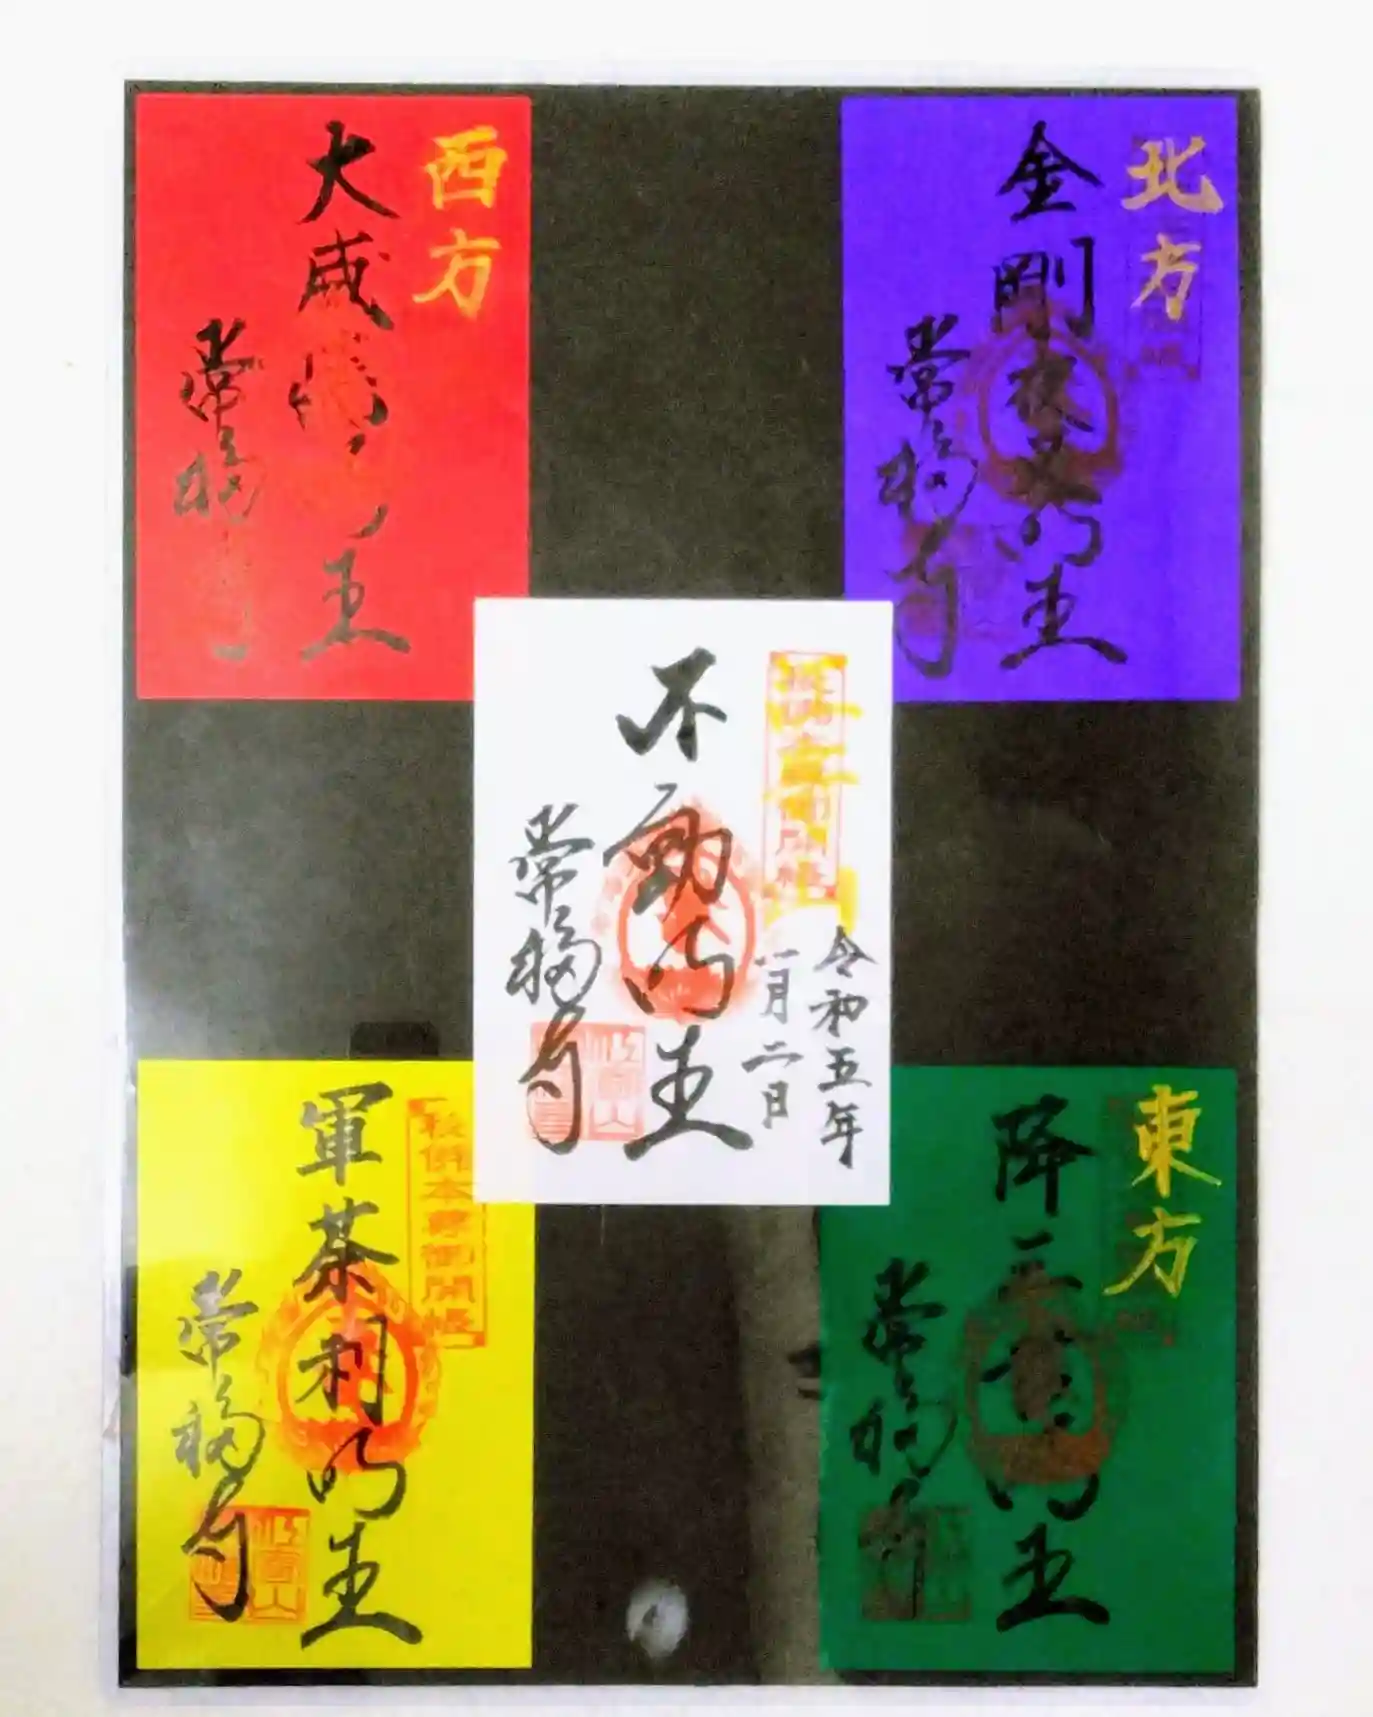 北方
金剛夜叉明王
常福寺
西方
大威徳明王
常福寺
令和五年
一月二日
不動明王
常福寺
東方
降三世明王
常福寺
秘佛本尊御開帳
軍荼利明王
常福寺